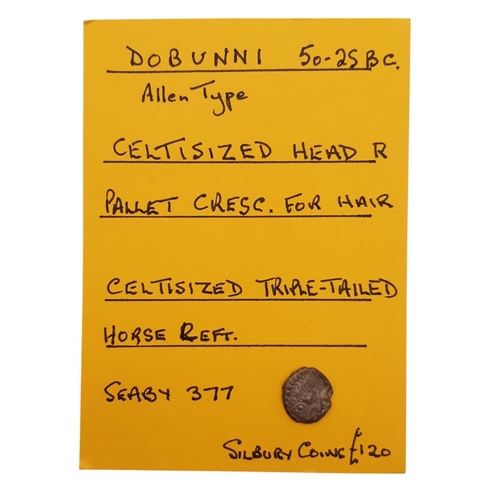 DOBUNNI 50-25BC.
Allen Type
CELTISIZED HEAD R
PALLET CRESC. FOR HAIR
CELTISIZED TRIPLE-TAILED
HORSE LEFT.
SEABY 377
SILBURY COINS £120